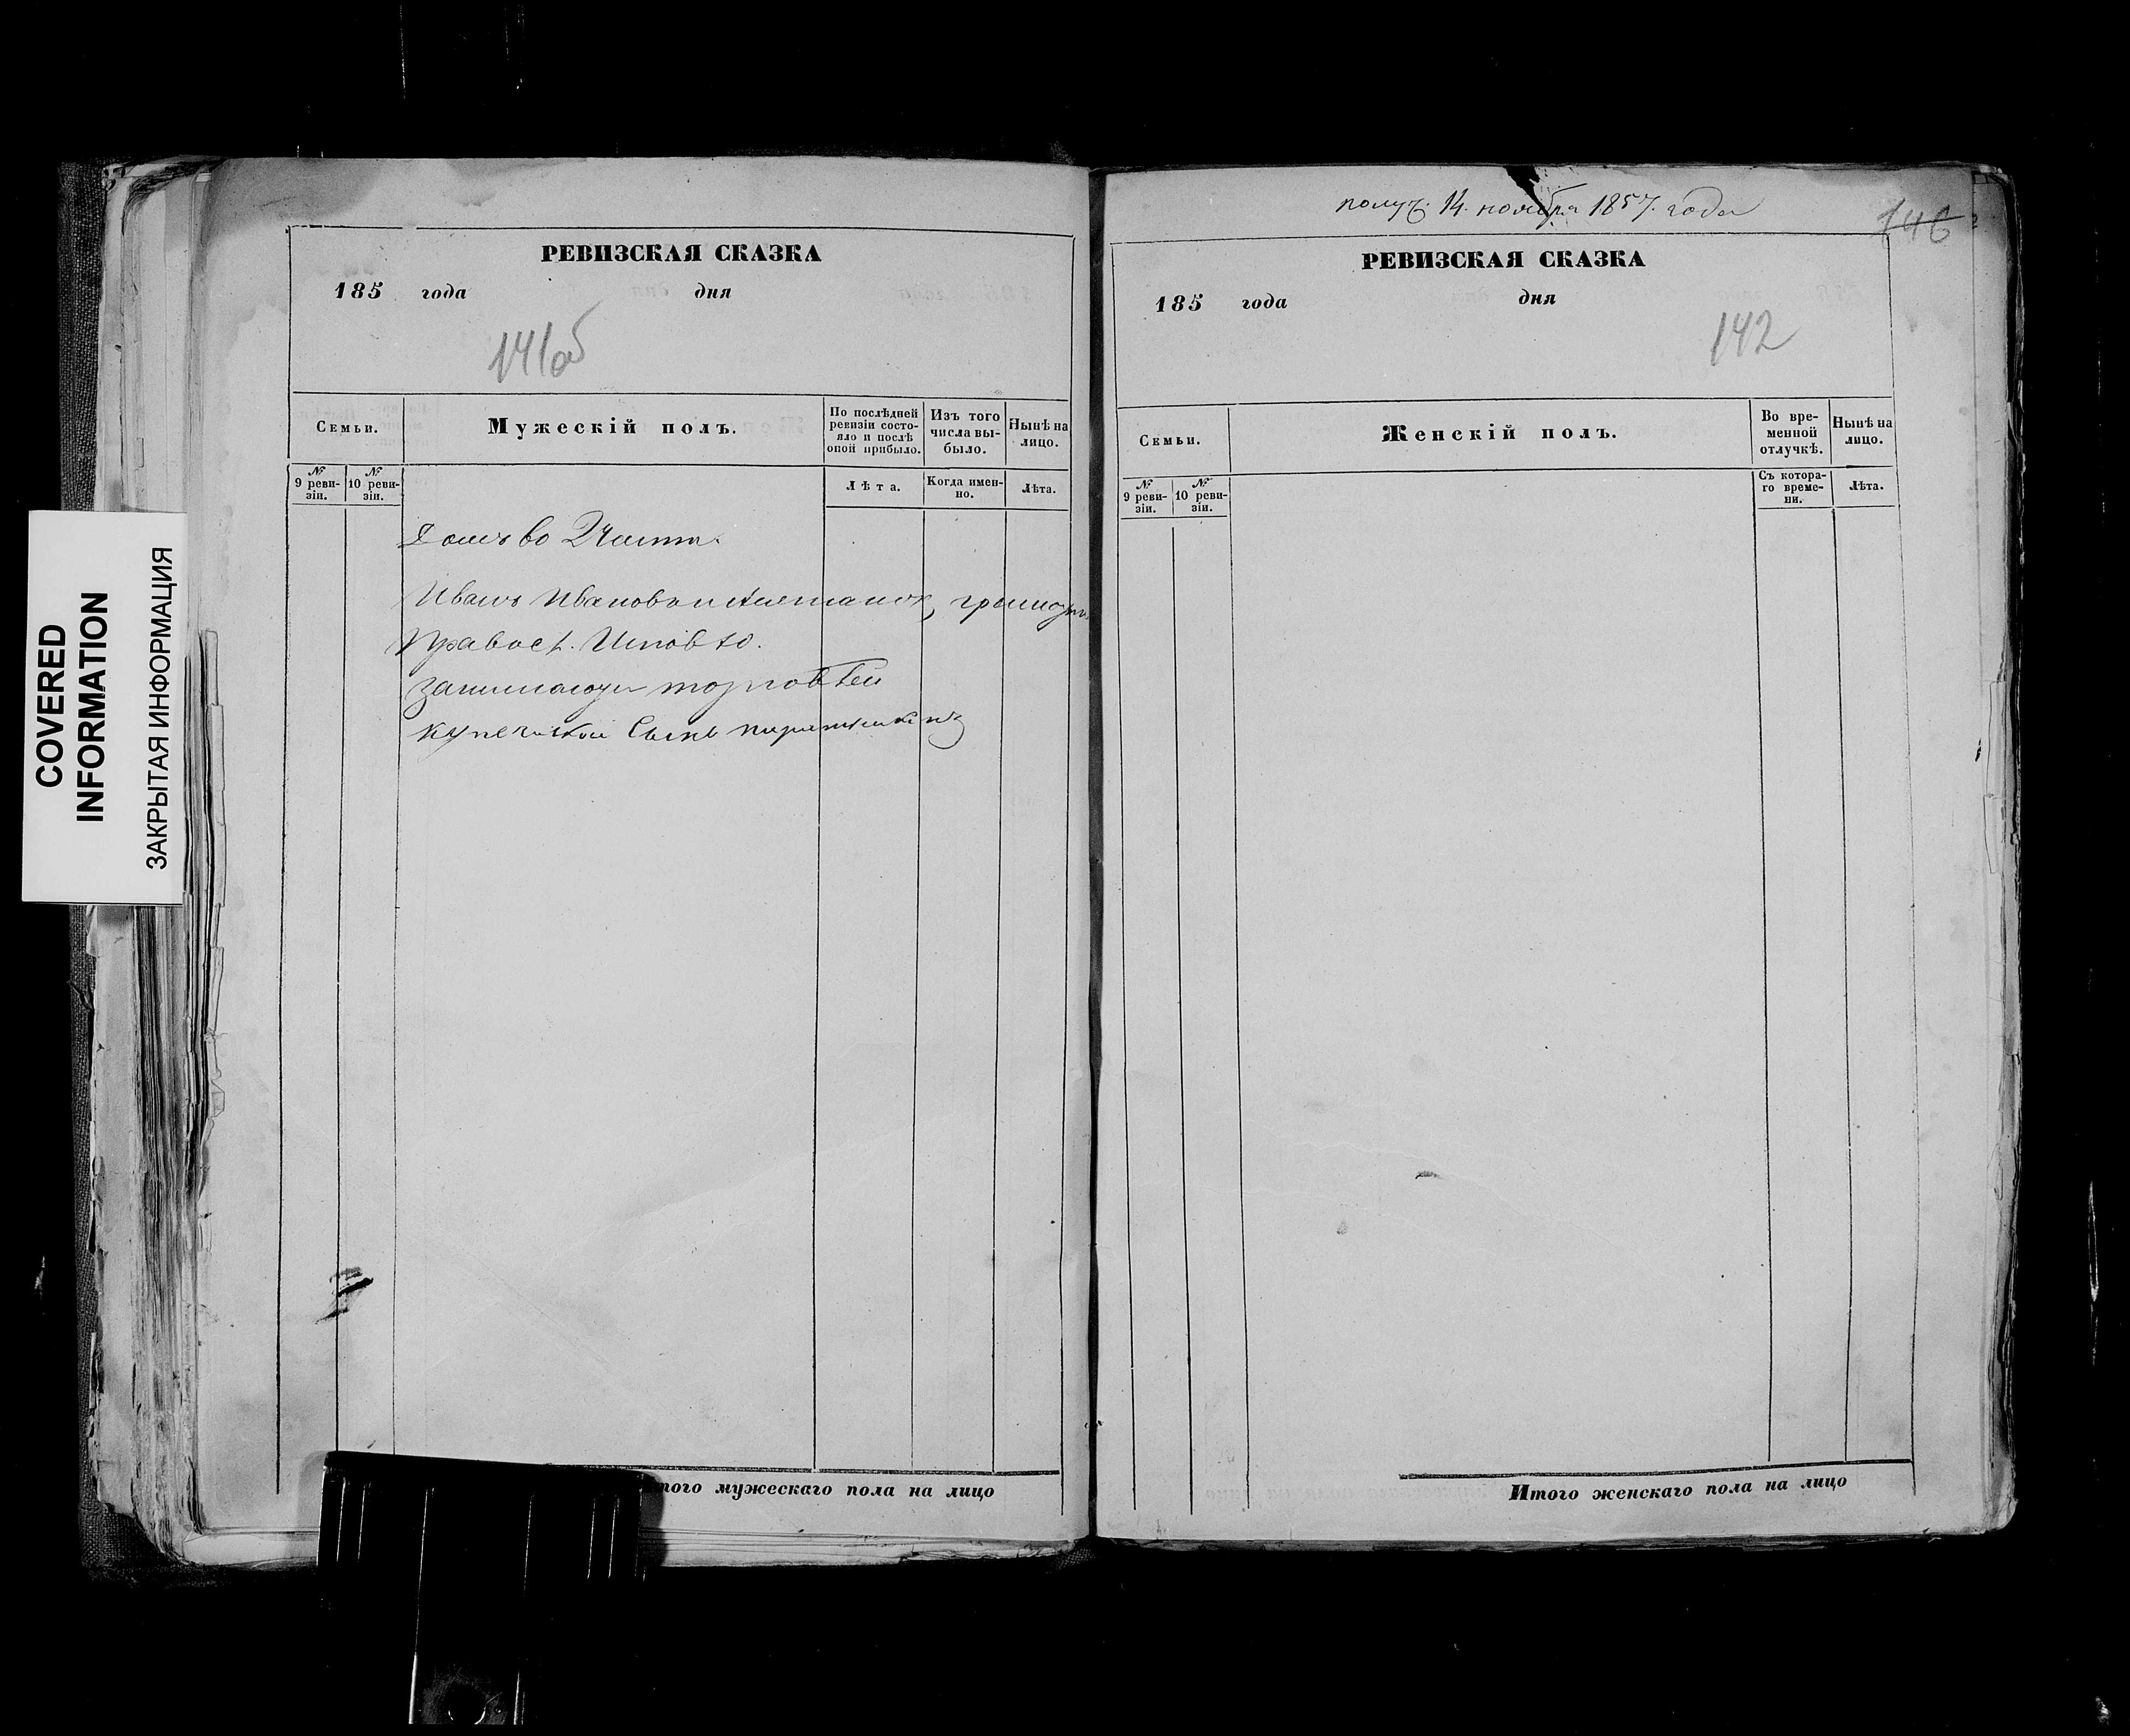 COVERED
INFORMATION
ЗАКРЫТАЯ ИНФОРМАЦИЯ
РЕВИЗСКАЯ СКАЗКА
185 года дня
141об
Семьи.
Мужескій полъ.
По послѣдней ревизіи состояло и послѣ оной прибыло.
Изъ того числа выбыло.
Нынѣ на лицо.
№ 9 ревизіи.
№ 10 ревизіи.
Лѣта.
Когда именно.
Лѣта.
Домъ во 2 части.
Иванъ Ивановъ
Правосл.
торговлей
купеческой Сынъ
Итого мужескаго пола на лицо
получ. 14. ноября 1857. года
146
РЕВИЗСКАЯ СКАЗКА
185 года дня
142
Семьи.
Женскій полъ.
Во временной отлучкѣ.
Нынѣ на лицо.
№ 9 ревизіи.
№ 10 ревизіи.
Съ котораго времени.
Лѣта.
Итого женскаго пола на лицо